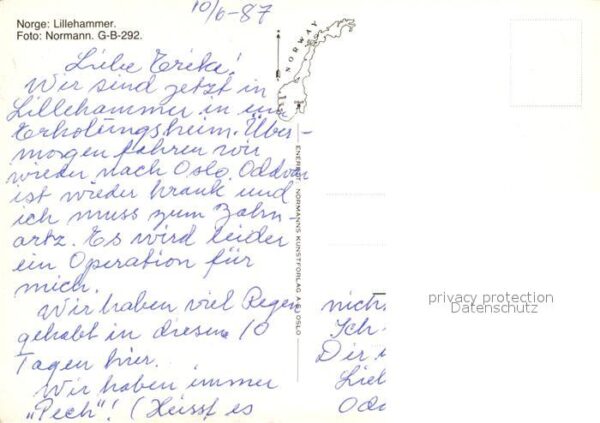 Norge: Lillehammer.
Foto: Normann. G-B-292.
10/6-87
NORWAY
Liebe Erika!
Wir sind jetzt in
Lillehammer in ein
Erholungsheim. Über-
morgen fahren wir
wieder nach Oslo. Oddvar
ist wieder krank und
ich muss zum Zahn-
artz. Es wird leider
ein Operation für
mich.
Wir haben viel Regen
gehabt in diesen 10
Tagen hier.
Wir haben immer
„Pech"! (Heisst es
ENERET: NORMANNS KUNSTFORLAG A.S, OSLO
nich
Ich
Dir
Lieb
Odd
privacy protection
Datenschutz